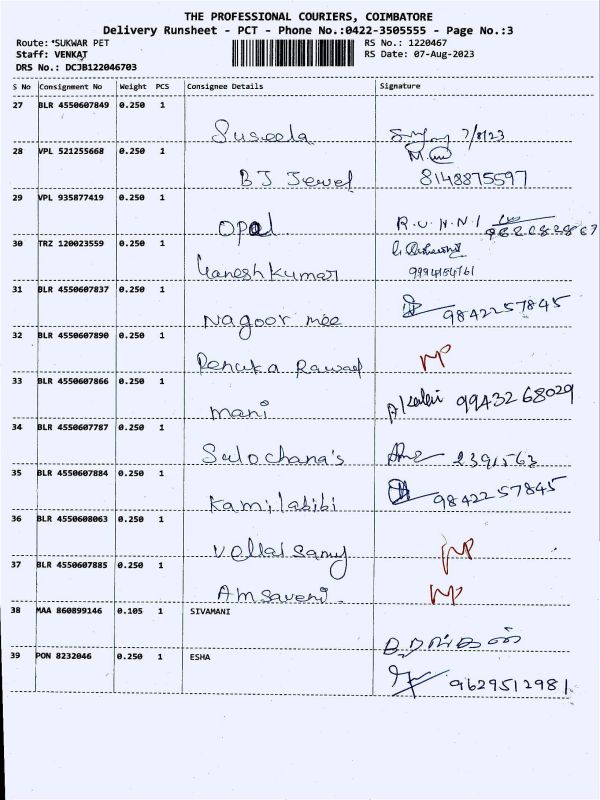 THE PROFESSIONAL COURIERS, COIMBATORE
Delivery Runsheet - PCT - Phone No.:0422-3505555 - Page No.:3
Route: *SUKWAR PET RS No.: 1220467
Staff: VENKAT RS Date: 07-Aug-2023
DRS No.: DCJB122046703
S No Consignment No Weight PCS Consignee Details Signature
27 BLR 4550607849 0.250 1
Suseela 7/8/23
28 VPL 521255668 0.250 1
BJ Jewel 8148875597
29 VPL 935877419 0.250 1
Opal R.U.H.N.I
30 TRZ 120023559 0.250 1
Ganesh Kumar 9994184761
31 BLR 4550607837 0.250 1
Nagoor mee 9842257845
32 BLR 4550607890 0.250 1
Renuka Rawal NP
33 BLR 4550607866 0.250 1
mani 99432 68029
34 BLR 4550607787 0.250 1
Sulochana's 2391563
35 BLR 4550607884 0.250 1
Kamilabibi 98422 57845
36 BLR 4550608063 0.250 1
Vellai Samy NP
37 BLR 4550607885 0.250 1
Amsaveni NP
38 MAA 860899146 0.105 1 SIVAMANI
39 PON 8232046 0.250 1 ESHA
9629512981